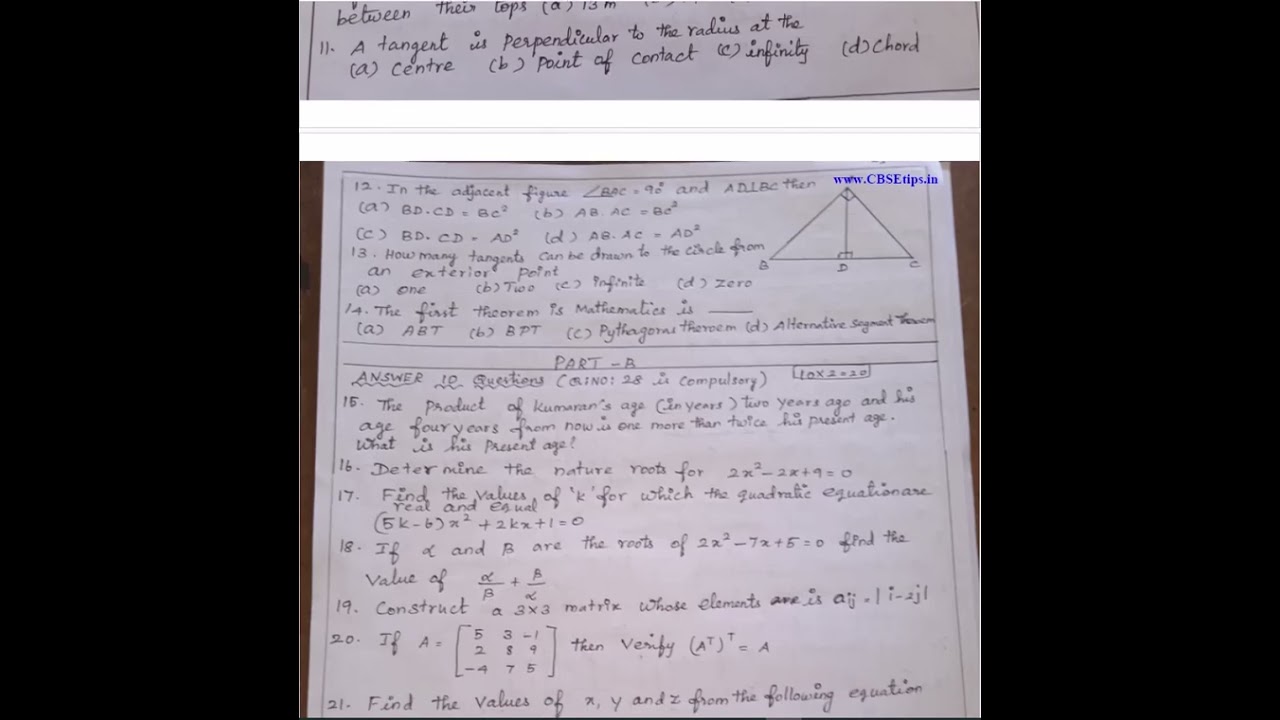 between their tops (a) 13 m
11. A tangent is perpendicular to the radius at the
(a) Centre (b) Point of contact (c) infinity (d) Chord
www.CBSEtips.in
12. In the adjacent figure ∠BAC = 90° and AD⊥BC then
(a) BD.CD = BC² (b) AB.AC = BC²
(c) BD.CD = AD² (d) AB.AC = AD²
B D C
13. How many tangents can be drawn to the circle from
an exterior point
(a) one (b) Two (c) infinite (d) Zero
14. The first theorem is Mathematics is ____
(a) ABT (b) BPT (c) Pythagoras theroem (d) Alternative segment Theorem
PART - B
ANSWER 10 Questions (Q.NO: 28 is compulsory) 10×2=20
15. The product of kumaran's age (in years) two years ago and his
age four years from now is one more than twice his present age.
What is his present age?
16. Determine the nature roots for 2x²-2x+9=0
17. Find the values of 'k' for which the quadratic equation are
real and equal
(5k-6)x²+2kx+1=0
18. If α and β are the roots of 2x²-7x+5=0 find the
value of α/β + β/α
19. Construct a 3×3 matrix whose elements are is aij = |i-2j|
20. If A = [5 3 -1
2 8 9
-4 7 5] then verify (Aᵀ)ᵀ = A
21. Find the values of x, y and z from the following equation